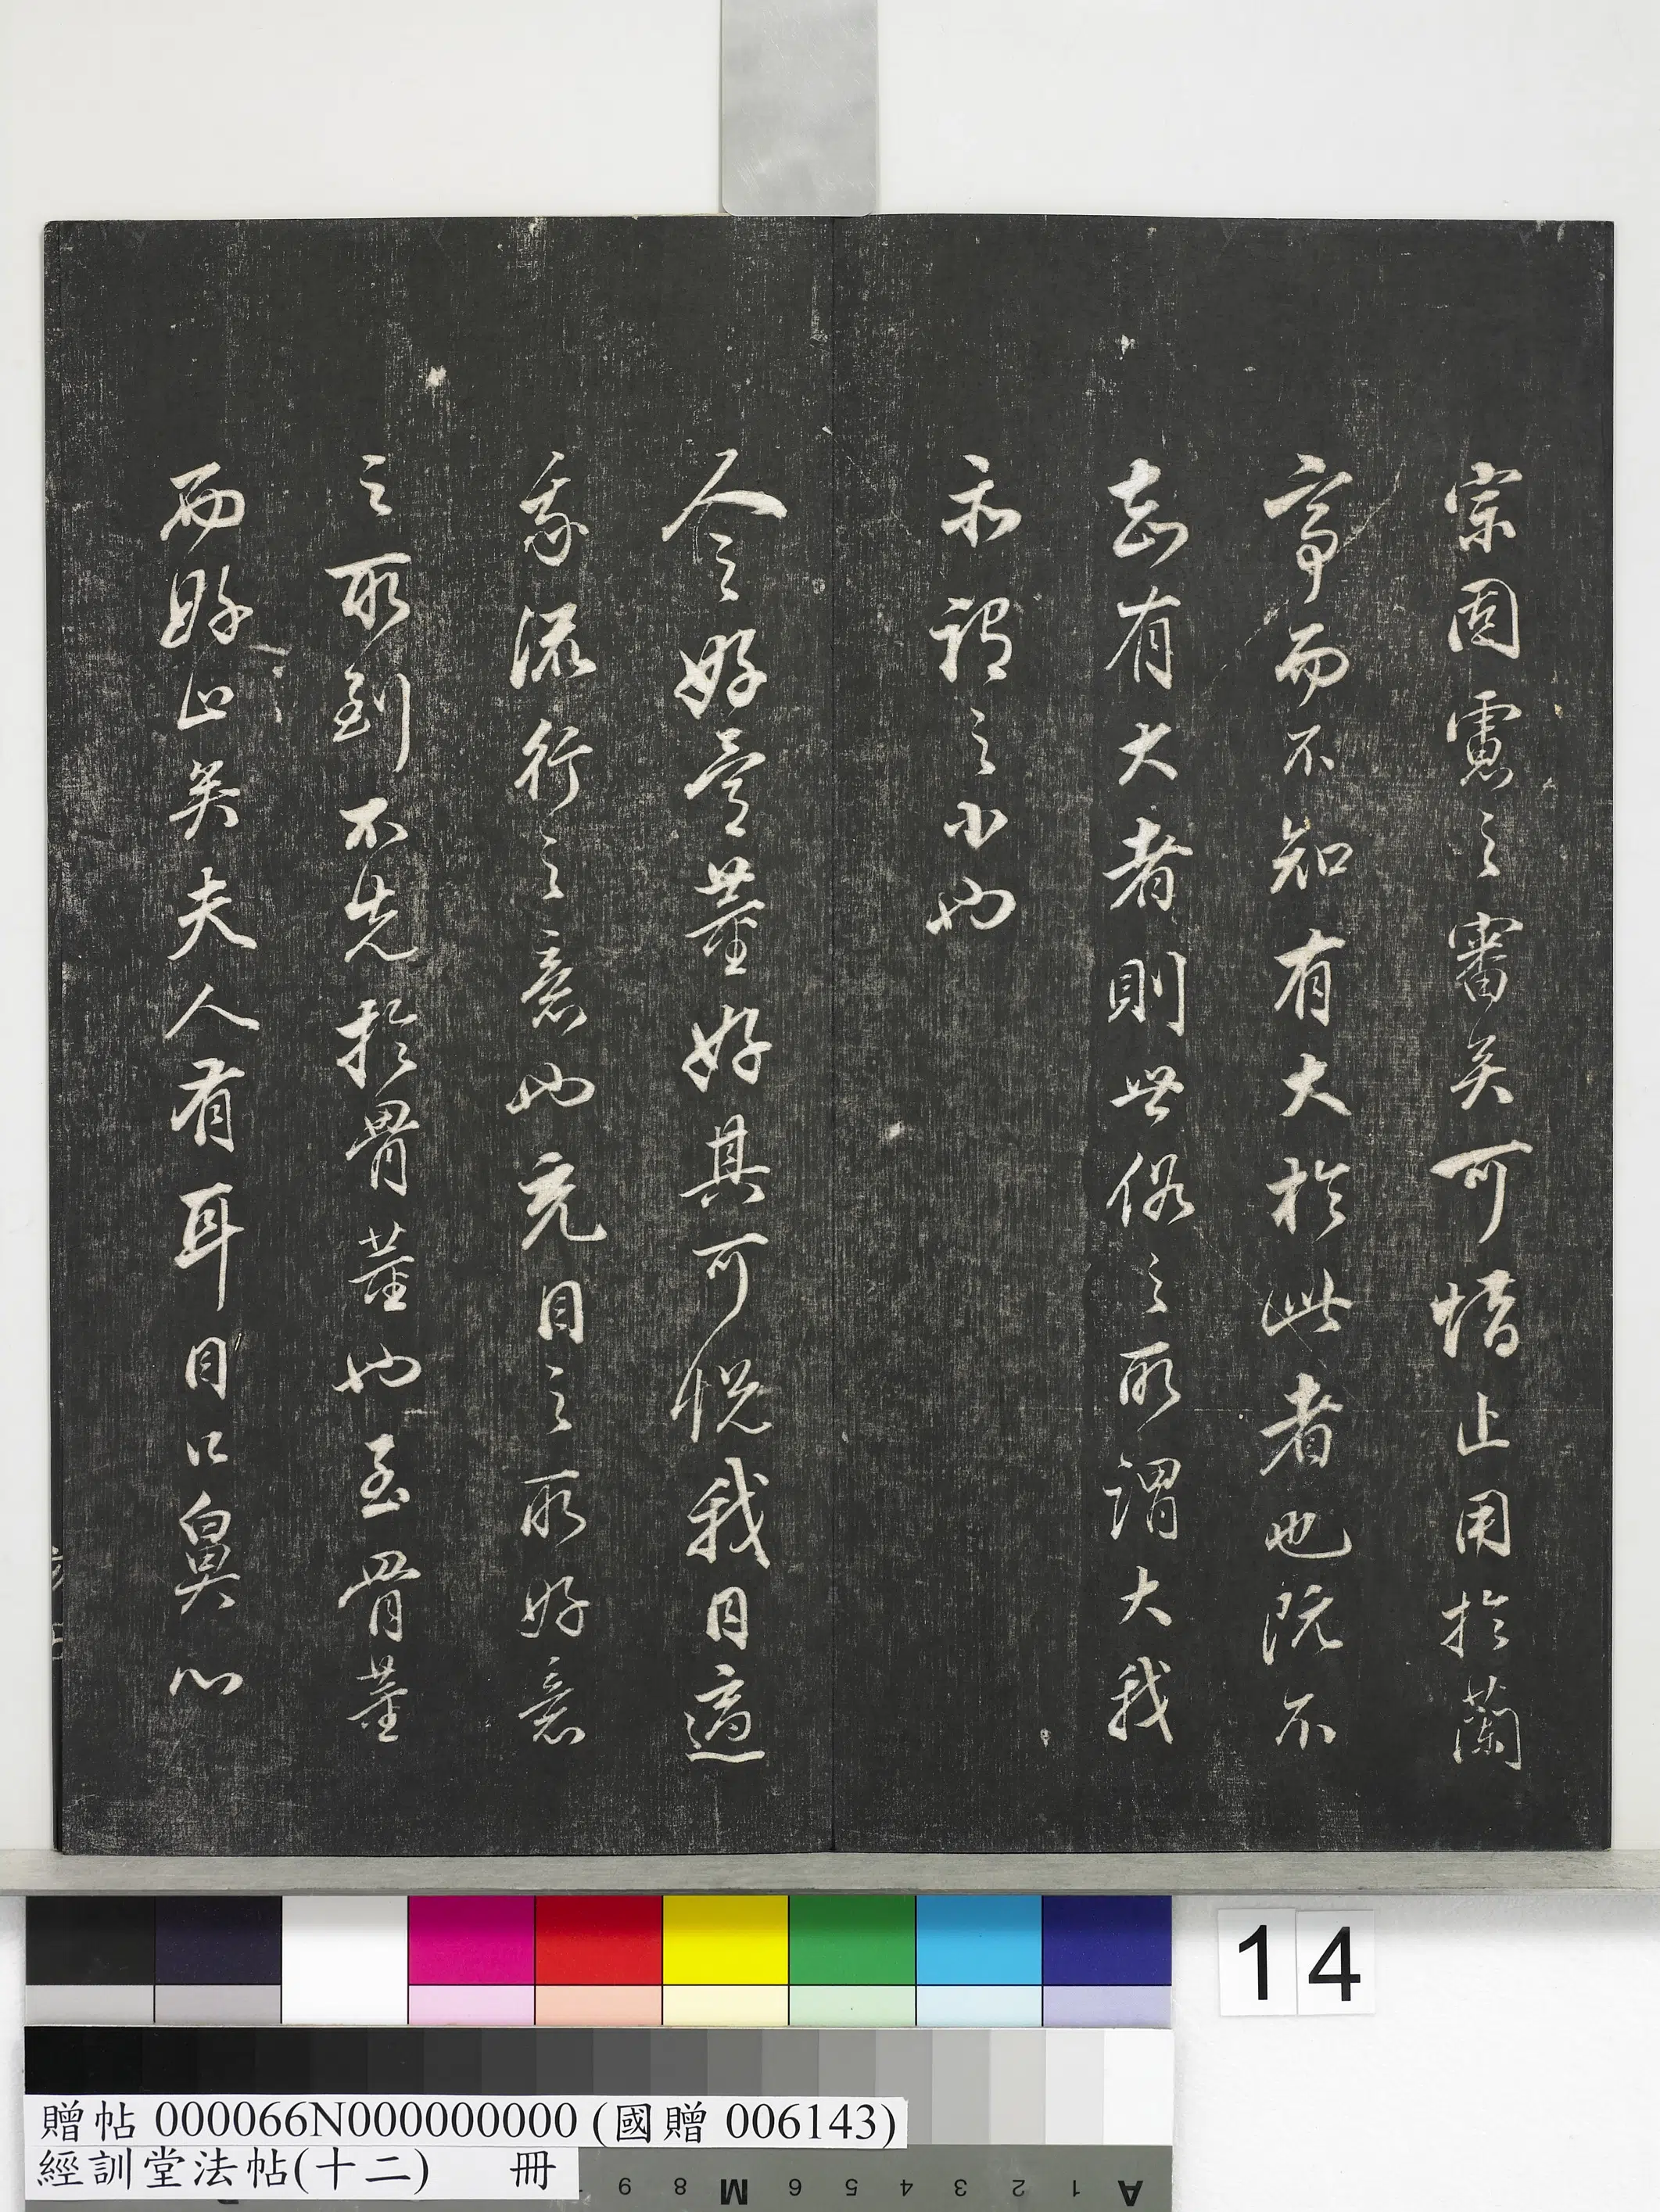 宗固慮之審矣可惜止用於蘭
亭而不知有大於此者也既不
知有大者則世俗之所謂大我
亦視之小也
人之好骨董好其可悅我目適
我流行之意也充目之所好意
之所到不先於骨董也至骨董
而好止矣夫人有耳目口鼻心
14
贈帖 000066N000000000 (國贈 006143)
經訓堂法帖(十二) 冊
A 1 2 3 4 5 6 M 8 9